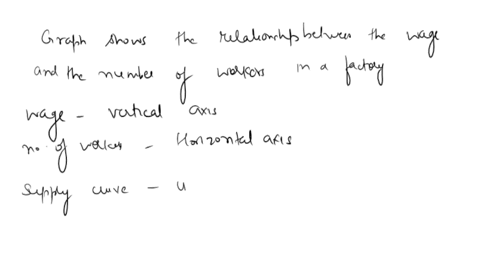 Graph shows the relationship between the wage
and the number of workers in a factory
wage - vertical axis
no. of workers - Horizontal axis
Supply curve - u